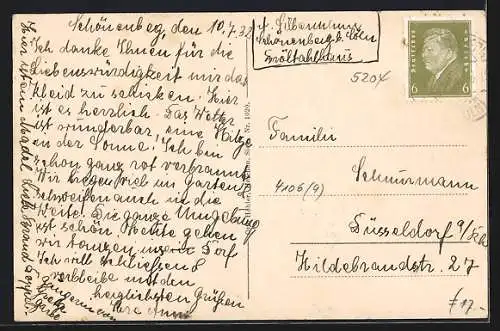 Schönenberg, den 10.7.32
Ich danke Ihnen für die
Liebenswürdigkeit mir das
Kleid zu schicken. Hier
ist es herrlich. Das Wetter
ist wunderbar, eine Hitze
an der Sonne. Ich bin
schon ganz rot verbrannt.
Wir liegen viel im Garten
schweifen auch in die
Weite. Die ganze Umgebung
ist schön. Heute gehen
wir tanzen Dorf
Ich will schliessen &
verbleibe mit den
herzlichsten Grüßen
Ihre
Schönenberg b. Köln
Bröltahlhaus
5204
Deutsches Reich
6 6
Familie
4106(9)
Schnurmann
Düsseldorf
Hildebrandstr. 27